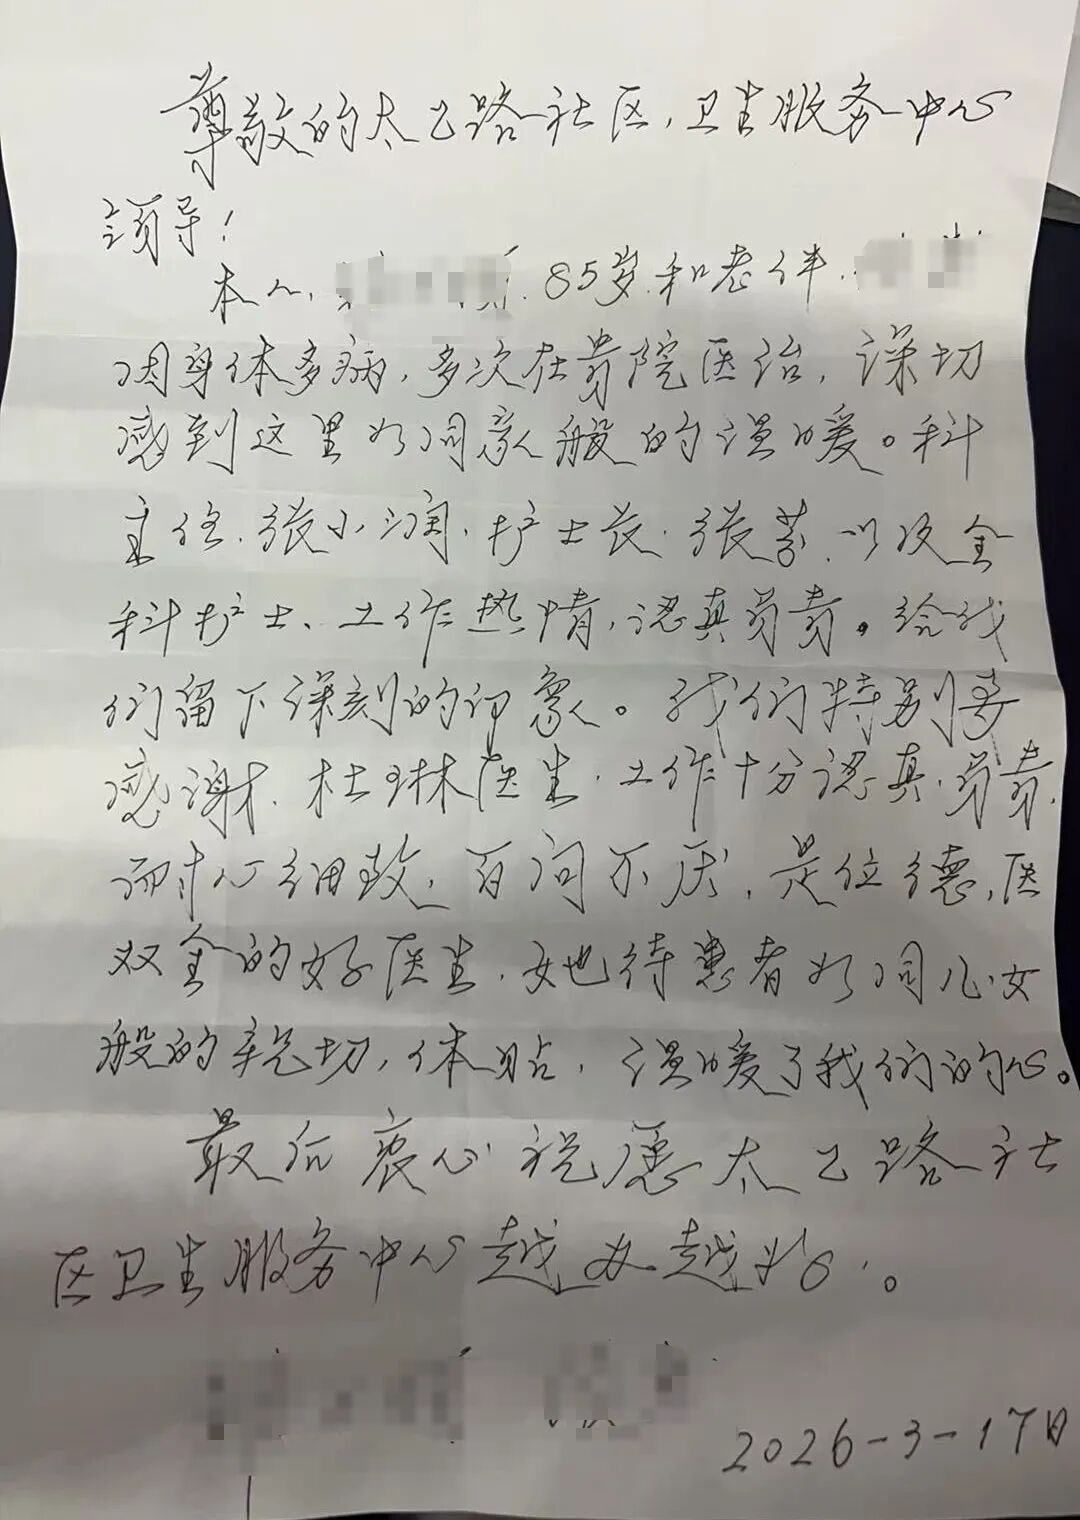 尊敬的太乙路社区,卫生服务中心
领导!
本人, 85岁.和老伴.
因身体多病,多次在贵院医治,深切
感到这里如同家般的温暖。科
主任.张小润.护士长.张芸.以及全
科护士、工作热情,认真负责。给我
们留下深刻的印象。我们特别要
感谢.杜琳医生.工作十分认真.负责.
耐心细致,百问不厌,是位德,医
双全的好医生,她待患者如同儿女
般的亲切,体贴,温暖了我们的心。
最后衷心祝愿太乙路社
区卫生服务中心越办越好。
2026-3-17日